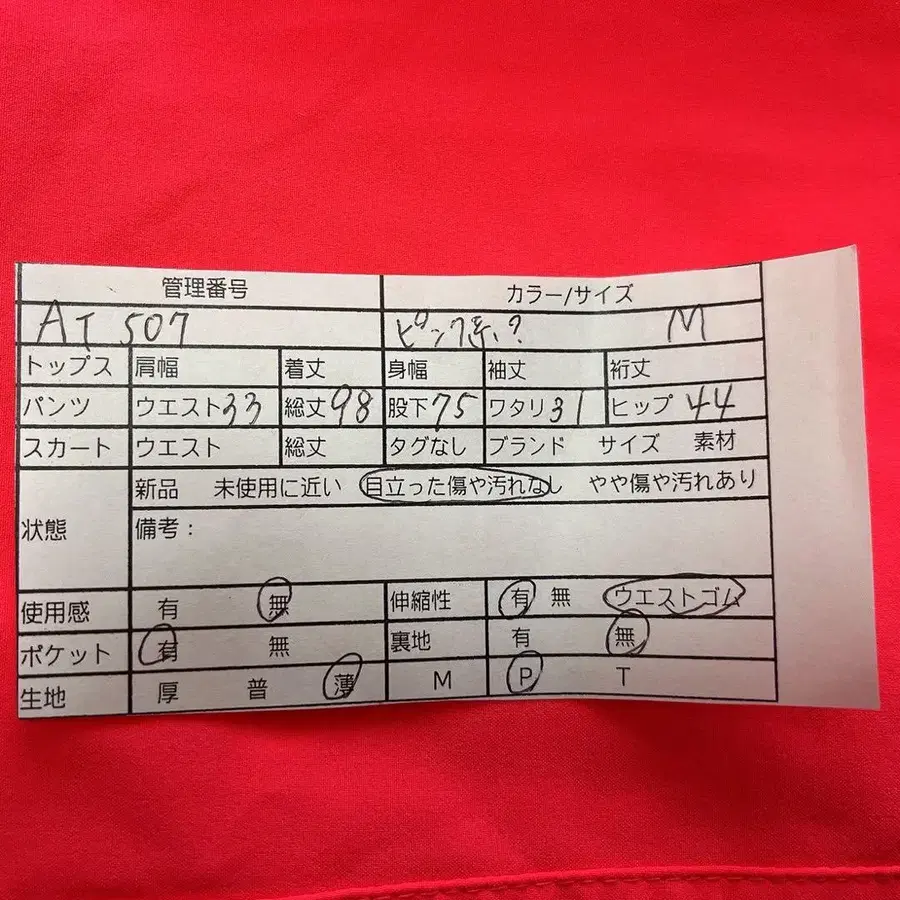 管理番号 カラー/サイズ
AT 507 ピンク系? M
トップス 肩幅 着丈 身幅 袖丈 裄丈
パンツ ウエスト33 総丈98 股下75 ワタリ31 ヒップ 44
スカート ウエスト 総丈 タグなし ブランド サイズ 素材
状態 新品 未使用に近い 目立った傷や汚れなし やや傷や汚れあり
備考:
使用感 有 無 伸縮性 有 無 ウエストゴム
ポケット 有 無 裏地 有 無
生地 厚 普 薄 M P T